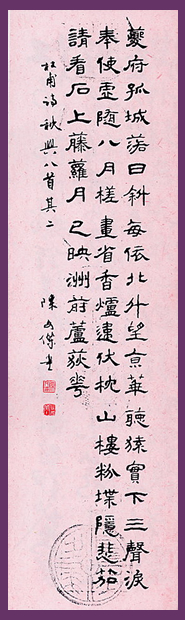 夔府孤城落日斜每依北斗望京華聽猿實下三聲淚
奉使虛隨八月槎畫省香爐違伏枕山樓粉堞隱悲笳
請看石上藤蘿月已映洲前蘆荻花
杜甫詩秋興八首其二 陳文傑書